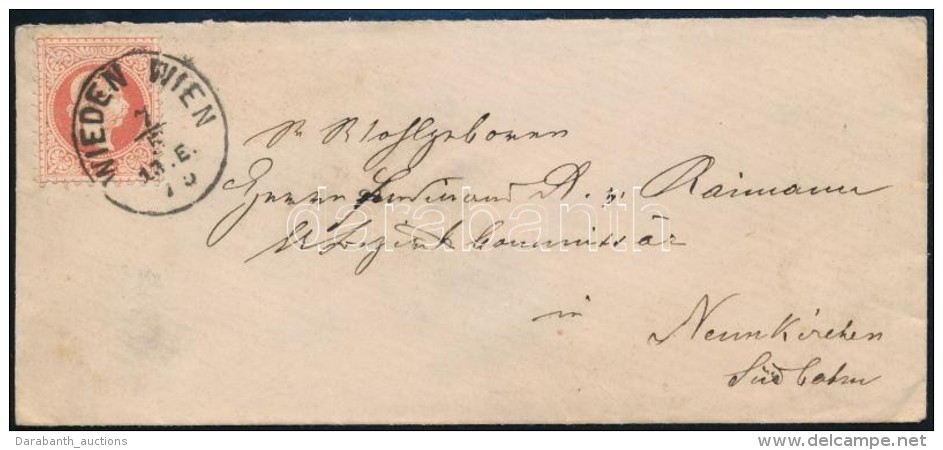 WIEDEN WIEN
Sr Wohlgeboren
Herrn Ferdinand R. v. Raimann
k k Bezirks Commissär
in
Neunkirchen
Südbahn
darabanth
Darabanth_auctions
www.delcampe.net